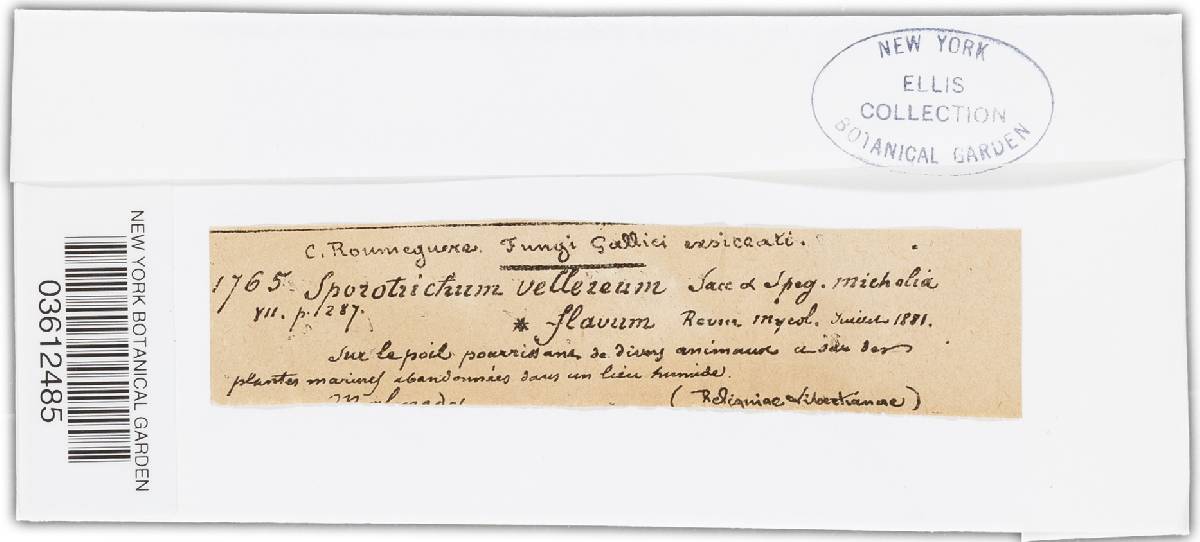 NEW YORK
ELLIS
COLLECTION
BOTANICAL GARDEN
NEW YORK BOTANICAL GARDEN
03612485
C. Roumeguere. Fungi Gallici exsiccati.
1765. Sporotrichum vellereum Sacc & Speg. michelia
VII. p. 287.
* flavum Revue Mycol. Juillet 1881.
Sur le poil pourrissant de divers animaux & sur des
plantes marines abandonnées dans un lieu humide.
(Reliquiae Libertianae)